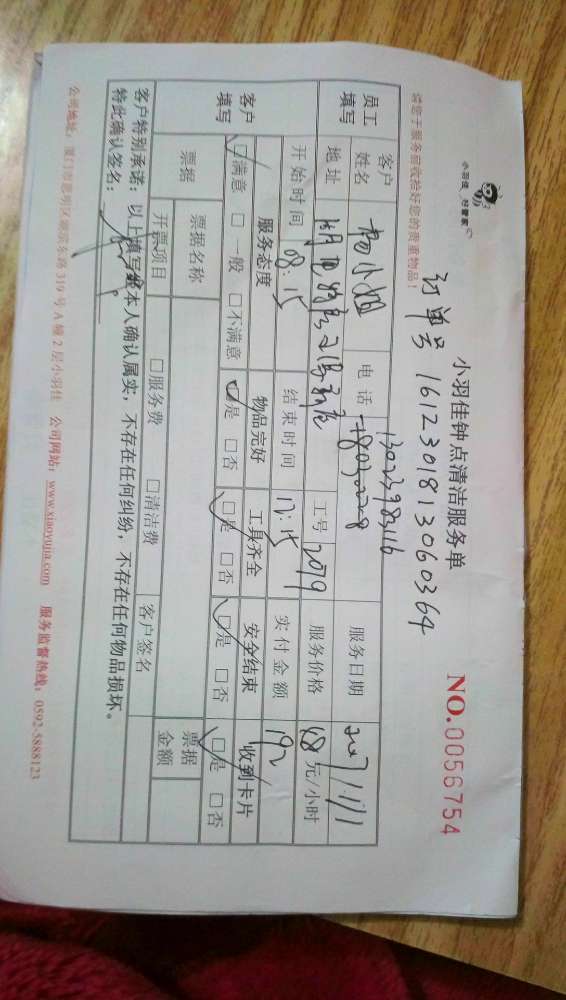 小羽佳 好管家
小羽佳钟点清洁服务单
NO.0056754
订单号 1612301813060364
请您于服务前收拾好您的贵重物品!
员工填写
客户姓名 杨小姐 电话 13023978316 服务日期 2017/1/1
地址 工号 2079 服务价格 48元/小时
开始时间 08:15 结束时间 12:15 实付金额 192
客户填写
服务态度 物品完好 工具齐全 安全结束 收到卡片
☑满意 □一般 □不满意 ☑是 □否 ☑是 □否 ☑是 □否 ☑是 □否
票据 票据名称 票据金额
开票项目 □服务费 □清洁费 客户签名
客户特别承诺:以上填写经本人确认属实,不存在任何纠纷,不存在任何物品损坏。
特此确认签名:
公司地址:厦门市思明区湖滨东路319号A幢2层小羽佳 公司网站:www.xiaoyujia.com 服务监督热线:0592-5888123